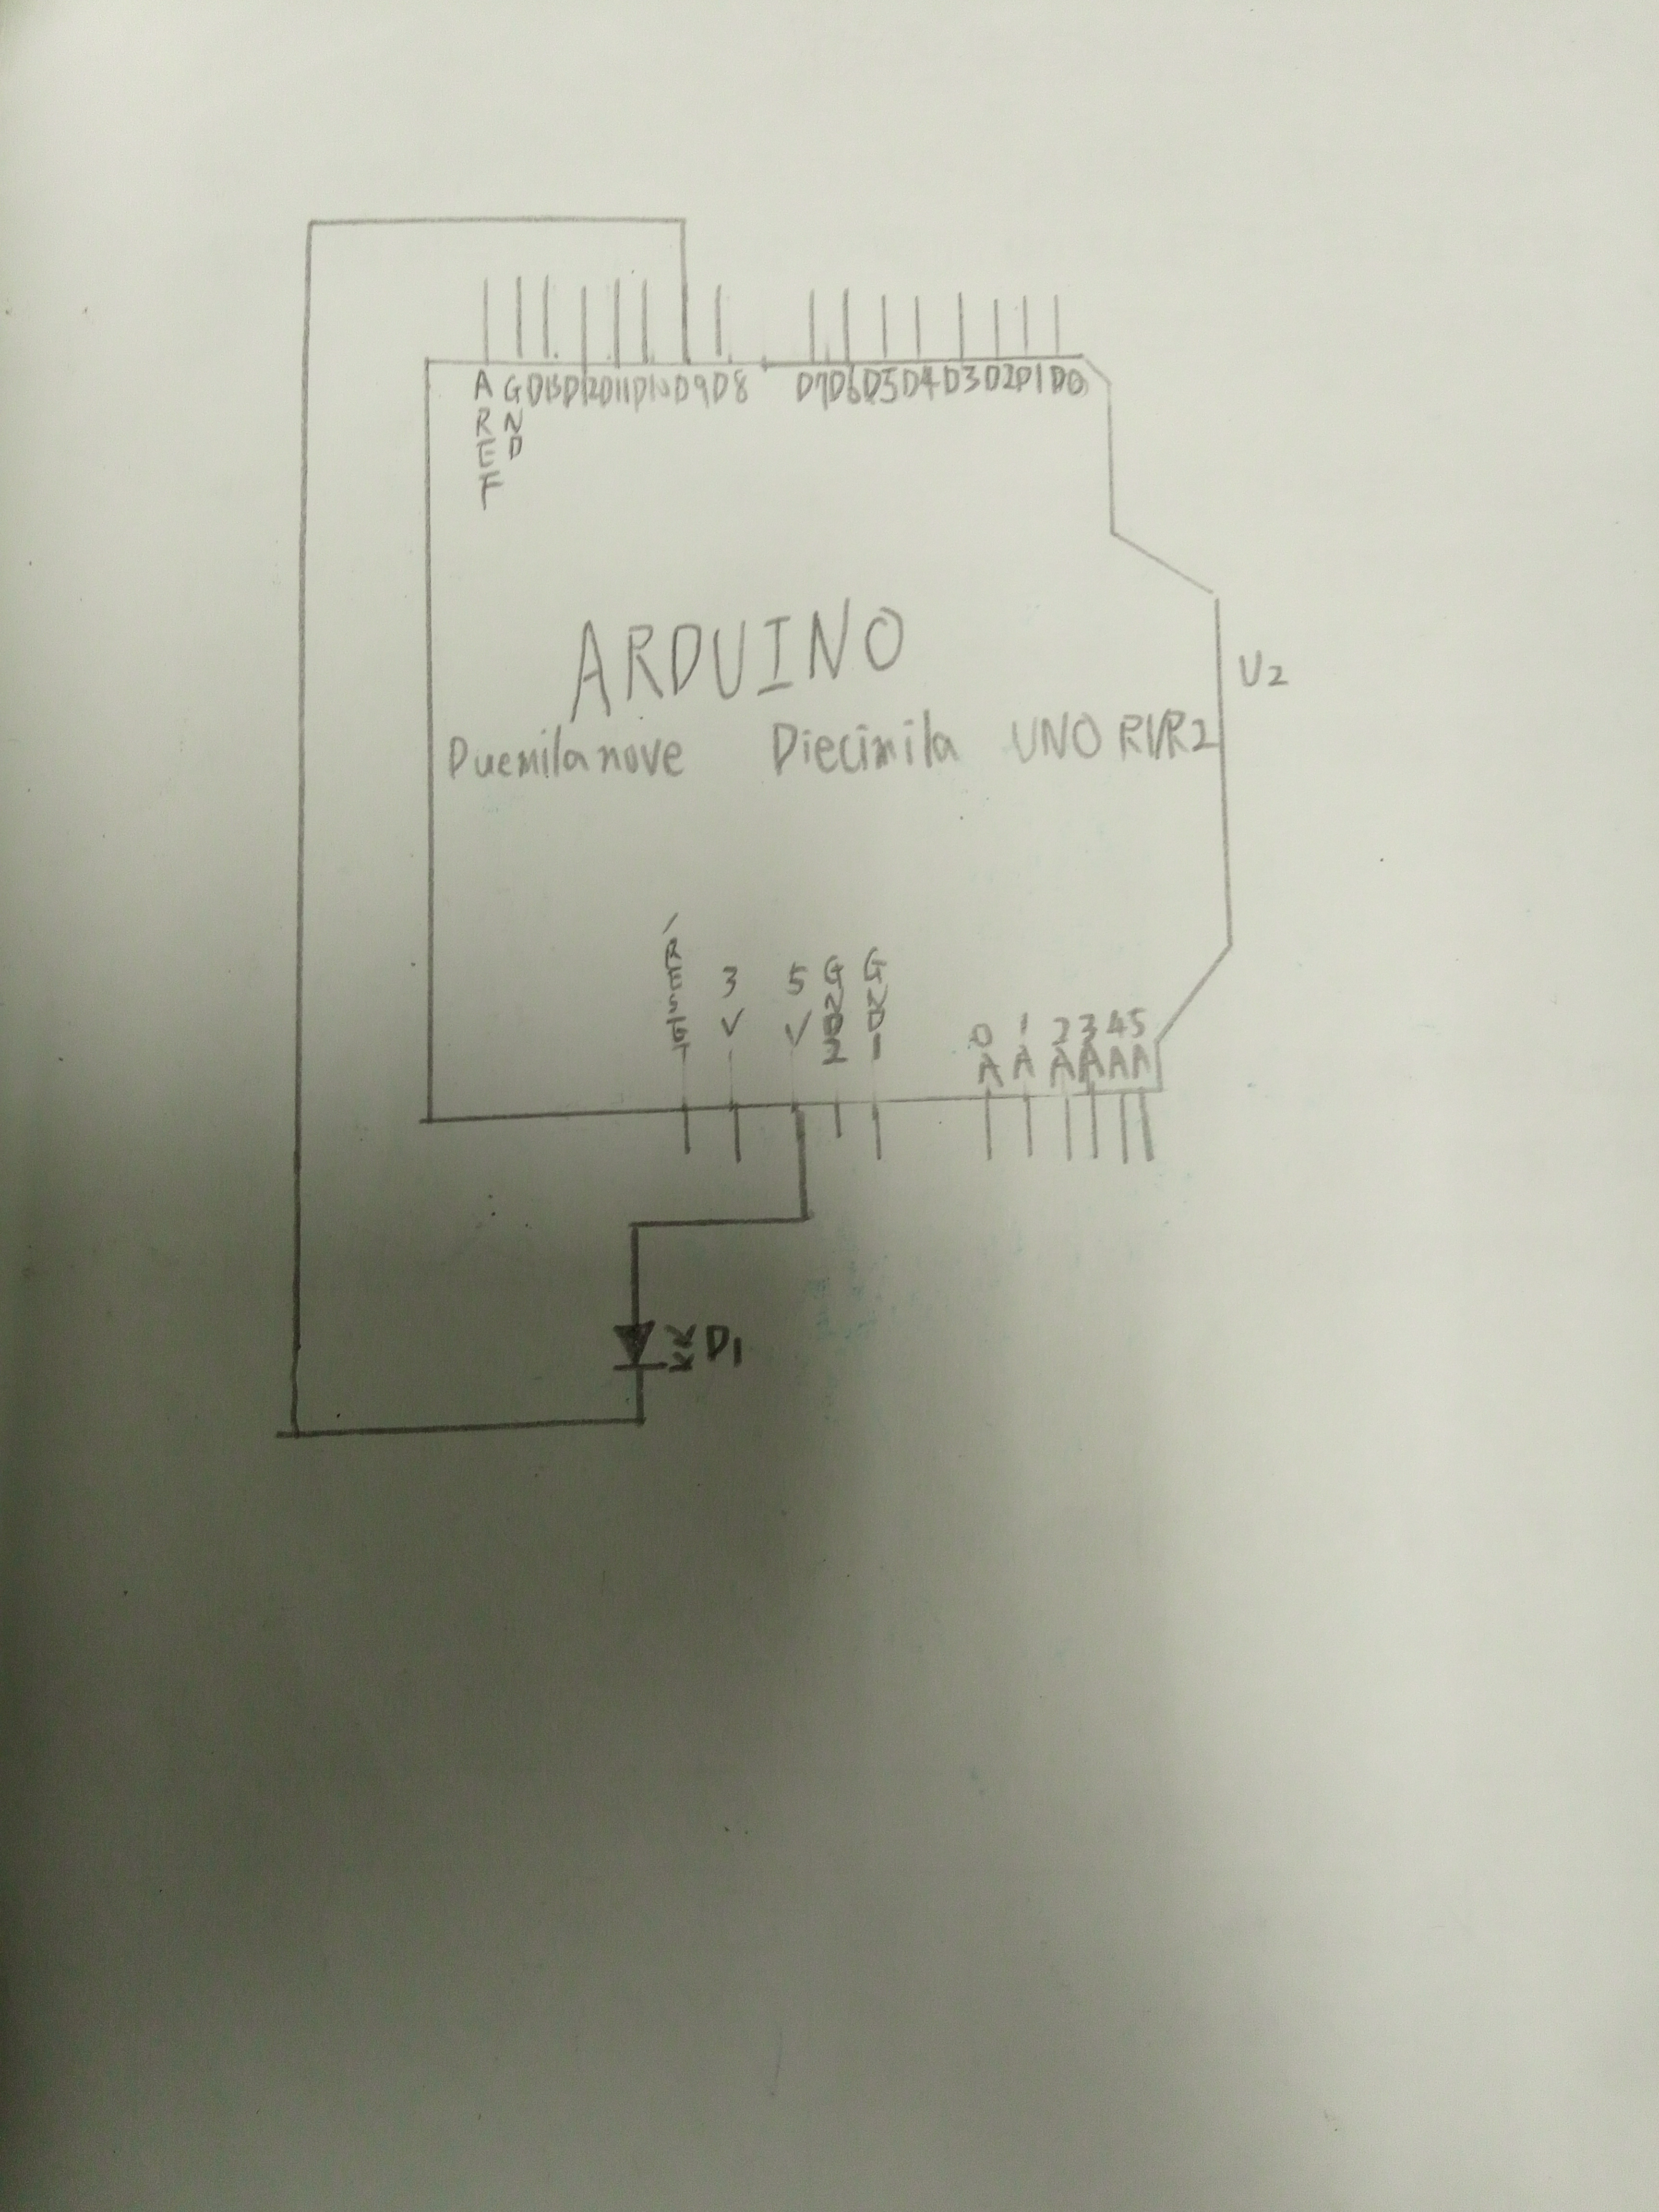 AREF GND D13 D12 D11 D10 D9 D8 D7 D6 D5 D4 D3 D2 D1 D0
ARDUINO
U2
Duemilanove Diecimila UNO R1/R2
/RESET 3V 5V GND2 GND1 0A 1A 2A 3A 4A 5A
D1